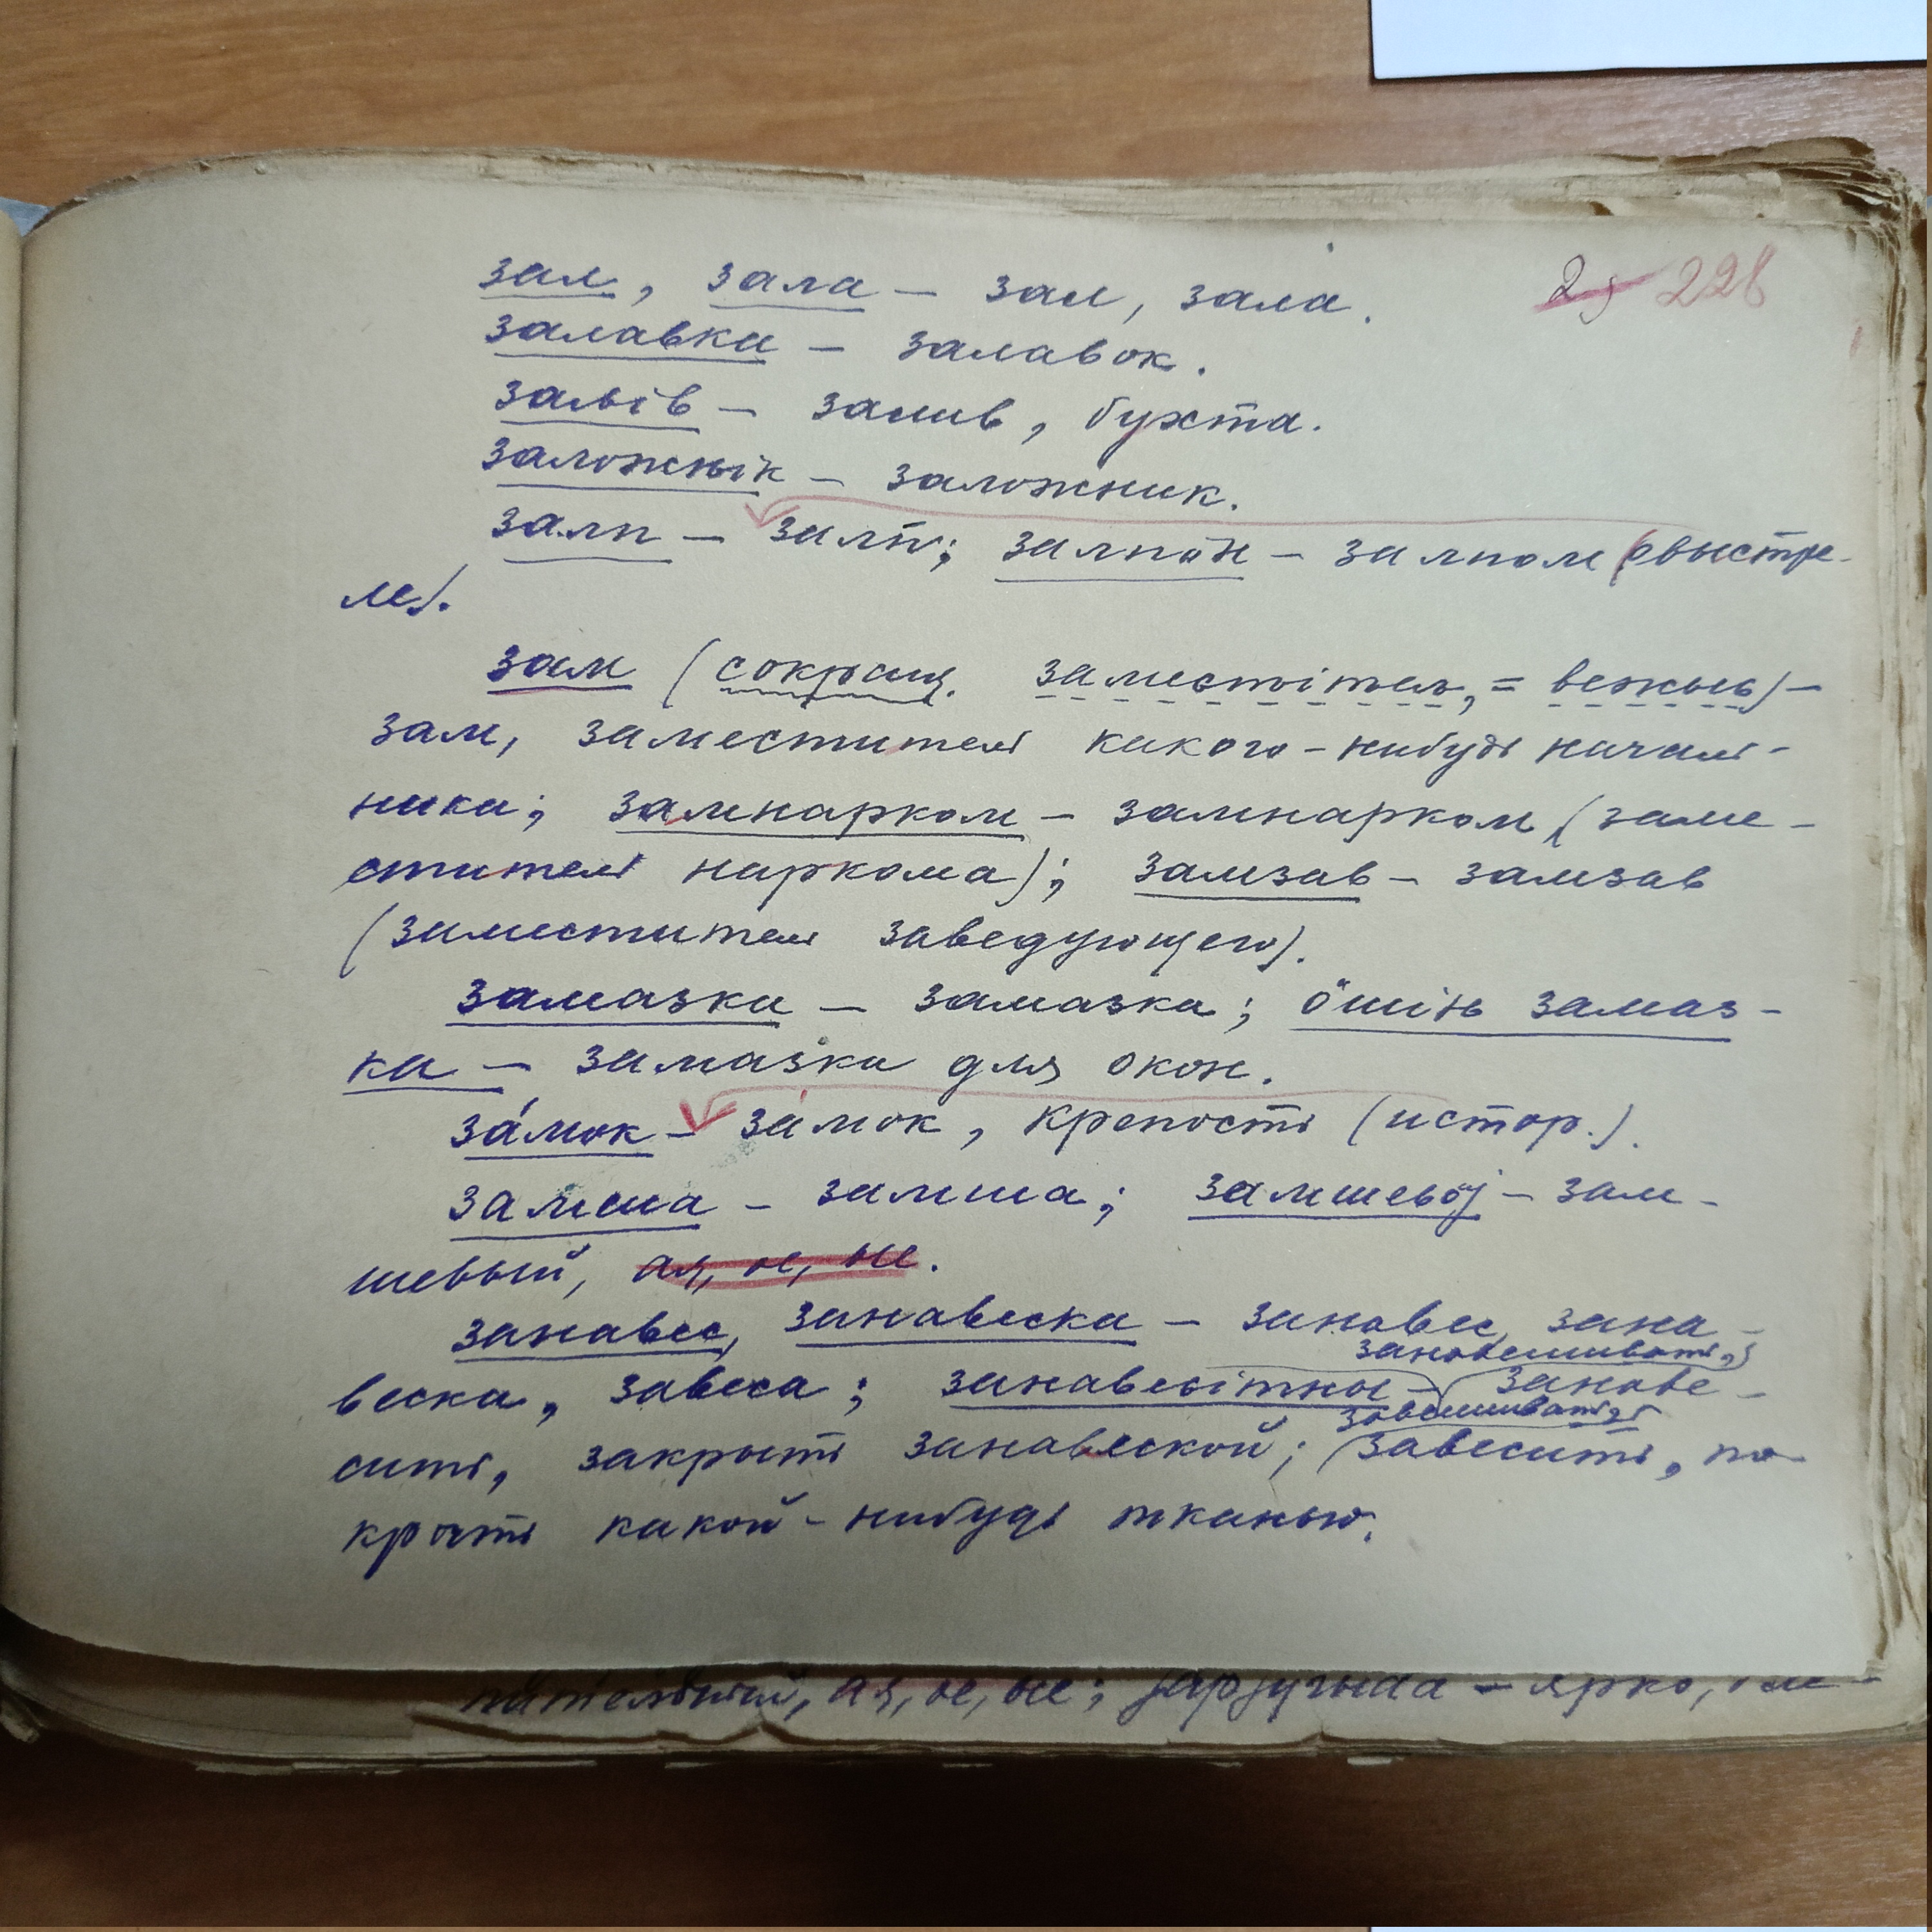 228
зал, зала – зал, зала.
залавка – залавок.
залів – залив, бухта.
заложнік – заложник.
залп – залп; залпӧн – залпом (о выстре-
ле).
зам (сокращ. заместітель, = вежыс) –
зам, заместитель какого-нибудь началь-
ника; замнарком – замнарком (заме-
ститель наркома); замзав – замзав
(заместитель заведующего).
замазка – замазка; ӧшінь замаз-
ка – замазка для окон.
за́мок – за́мок, крепость (истор.).
замша – замша; замшевӧj – зам-
шевый, ая, ое, ые.
занавес, занавеска – занавес, зана-
занавешивать,
веска, завеса; занавесітны – занаве-
завешивать,
сить, закрыть занавеской; завесить, по-
крыть какой-нибудь тканью.
ая, ое, ые; – ярко,